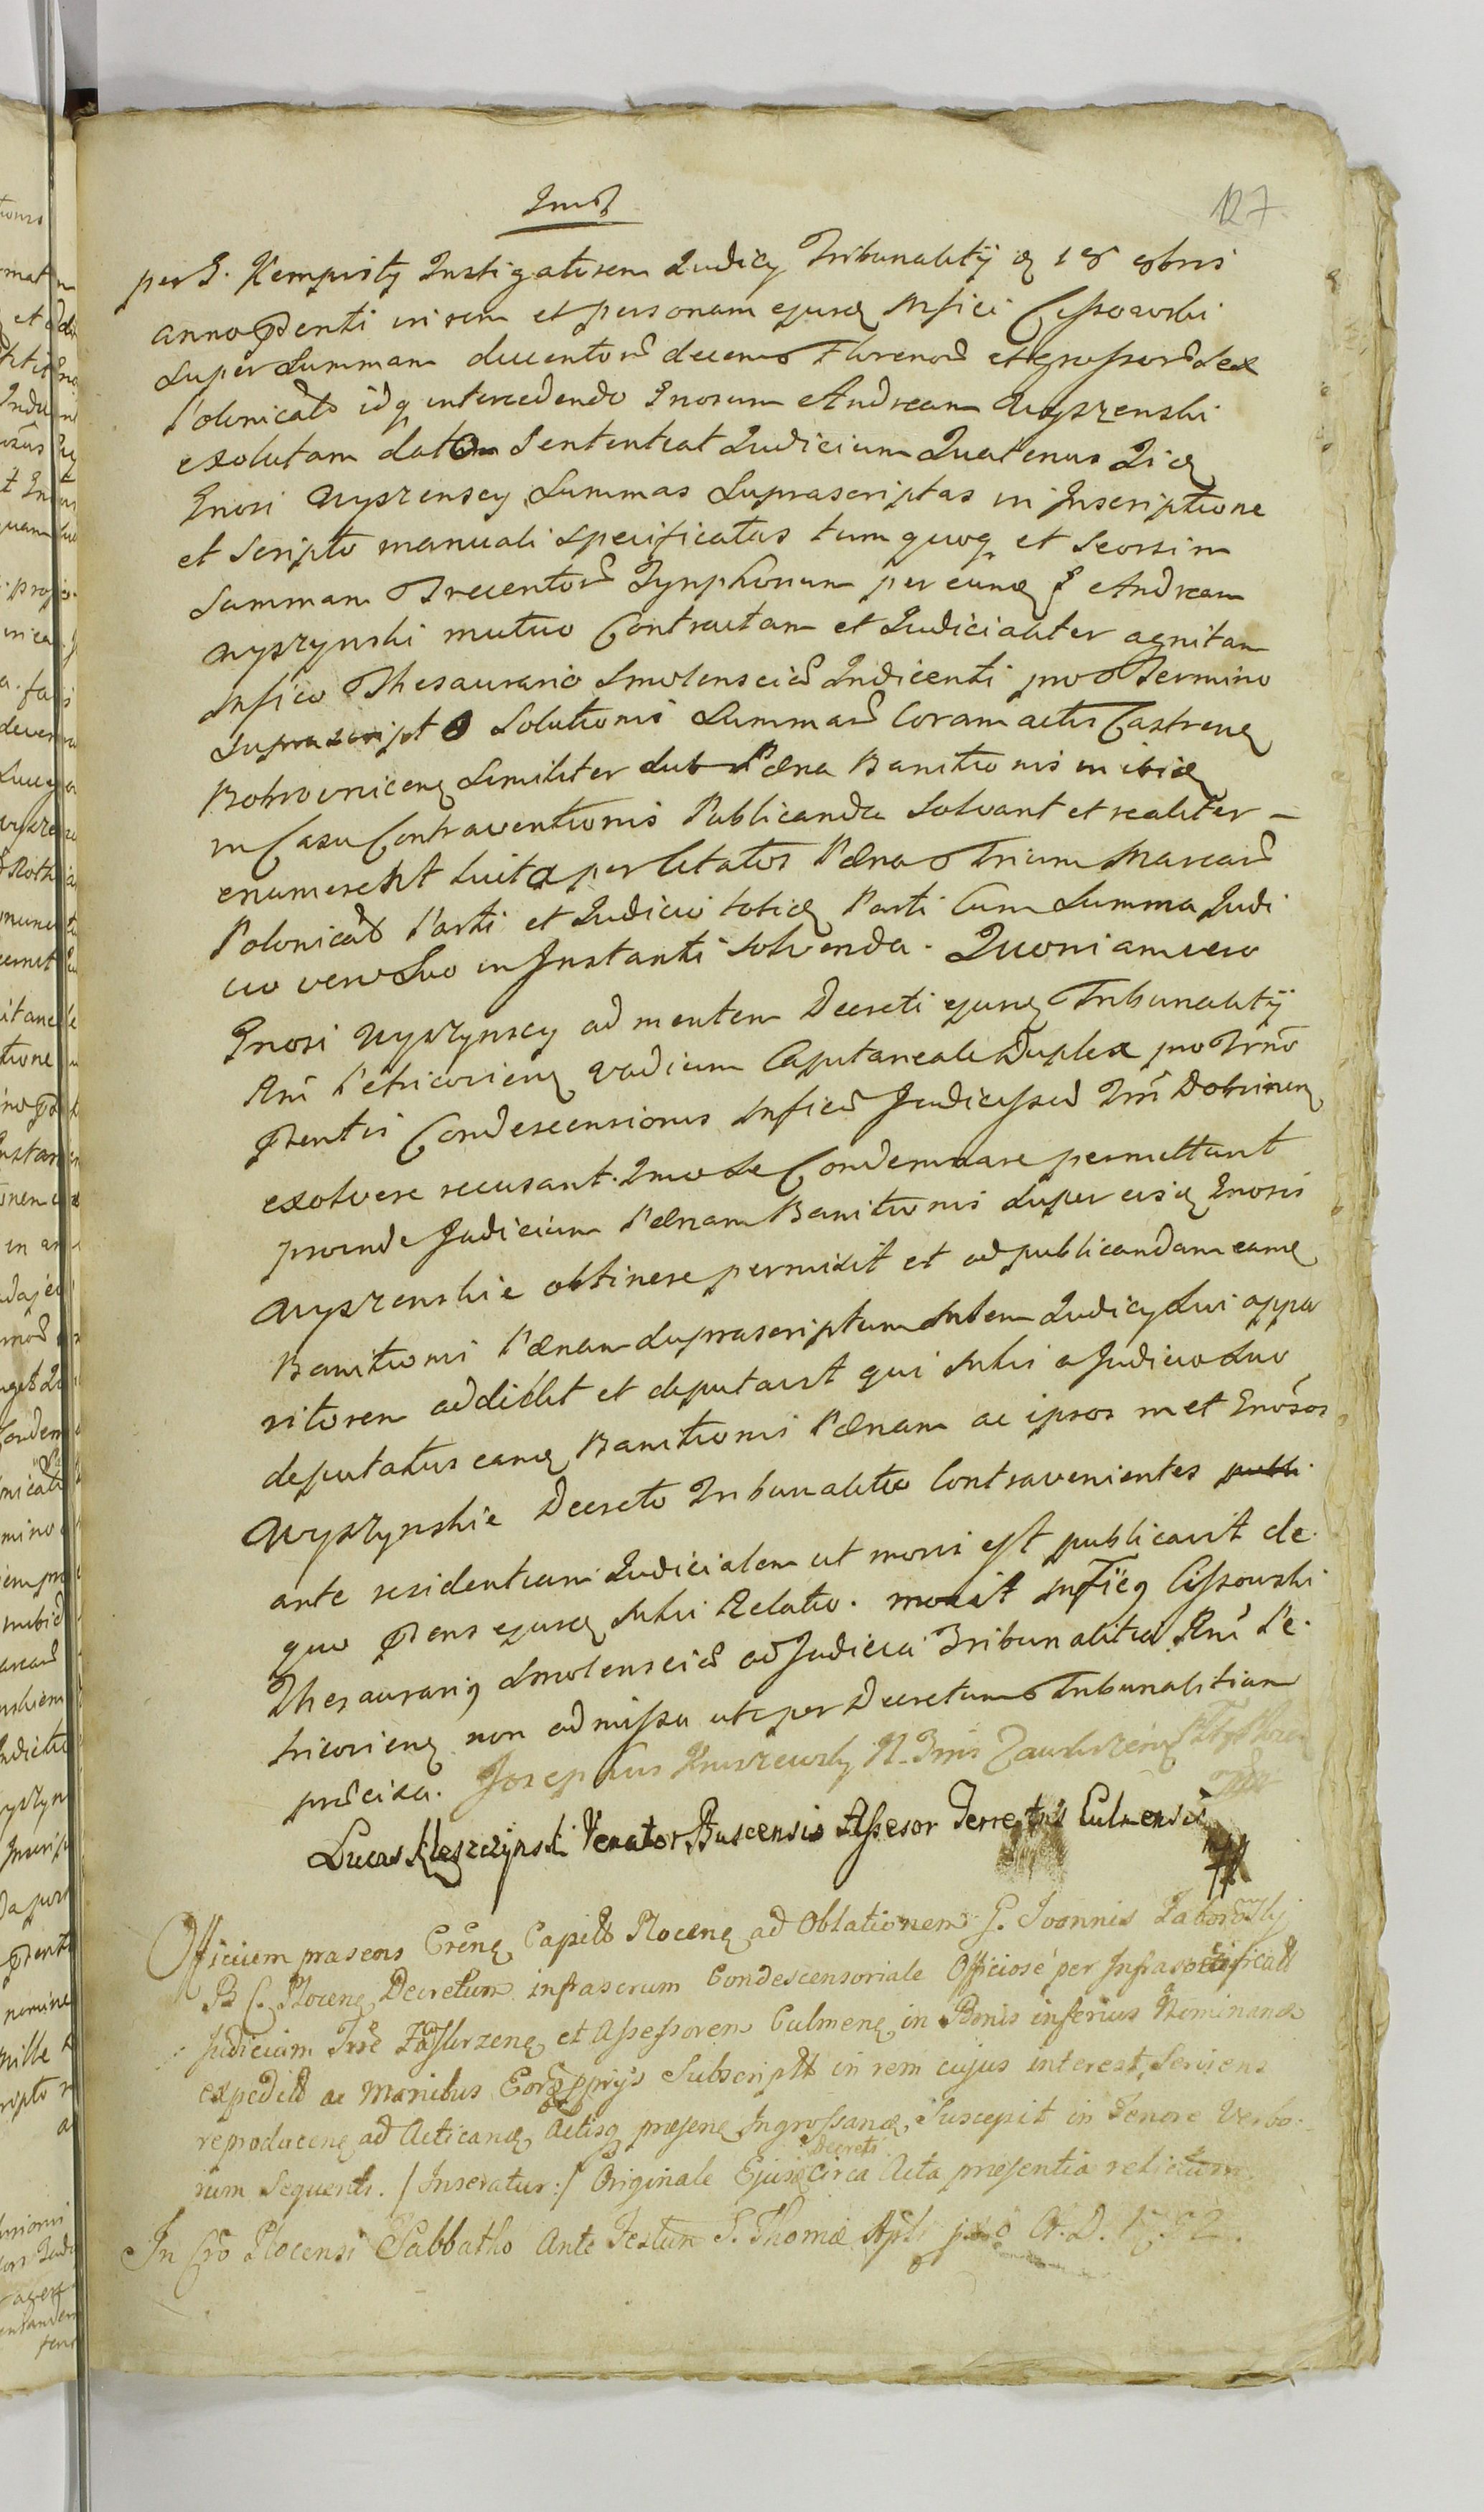 127
per G. Kempisty Instigatorem Judicy Tribunalitij 18 8bris
anno pnti in rem et personam ejusq Mfici Cissowski
super Summam ducentorum decem Florenor et grossor sex
Polonical idq intercedendo Gnosum Andream Wyszenski
exolutam datam Sententiat Judicium Quatenus Iiq
Gnosi Wyszenscy Summas Suprascriptas in Inscriptione
et Scripto manuali specificatas tum quoq et seorsim
Summam Trecentor Tynphonum per eunq G Andream
Wyszynski mutuo Contractam et Judicialiter agnitam
Mfico Thesaurario Smolenscien Indicenti pro Termino
suprascripto Solutionis Summar Coram actis Castrenq
Bobrovnicenq Similiter Sub Pæna Banitionis in ibiq
in Casu Contraventionis Publicanda Solvant et realiter –
enumerent luita perlitatos Pæna Trium Marcar
Polonical Parti et Judicio totiq Parti Cum Summa Judi
cio vero Suo in Instanti Solvenda. Quoniam vero
Gnosi Wyszynscy ad mentem Decreti ejusq Tribunalitij
Rni Petricovienq vadium Capitaneale Duplex pro Trno
pntis Condescensionis Mfico Judici Trri Dobrinenq
exolvere recusant. Imo Se Condemnare permittunt
proinde Judicium Pænam Banitionis super eisq Gnosis
Wyszenskie obtinere permisit et ad publicandam eamq
Banitionis Pænam Suprascriptum Mlem Judicy Sui appa
ritorem addidit et deputavit qui Mlis a Judicio Suo
deputatus eamq Banitionis Pænam ac ipsos met Gnosos
Wyszynskie Decreto Tribunalitio Contravenientes publi
ante residentiam Judicialem ut moris est publicavit de
quo pns ejusq Mlis Relatio. movit Mficq Cissowski
Thesaurariq Smolenscien ad Judicia Tribunalitia Rni Pe.
tricovienq non admissa uti per Decretum Tribunalitium
præcisa. Josephus Kruszewsky
Lucas Kleszczynski Venator Buscensis Assesor Terrestris Culmensis
Officium præsens Crenq Capitl Plocenq ad Oblationem G. Joannis Zaborowskj
B C. Plocenq Decretum infrascrum Condescensoriale Officiose per Infraspecificatl
Judicium Trre Zawskrzenq et Assessorem Culmenq in Bonis inferius Nominand
expeditl ac Manibus Eorq pprijs Subscriptl in rem cujus interest, Serviens
reproducenq ad Acticanq Actisq præsenq Ingrossanq, Suscepit in Tenore Verbo-
rum Sequenti. /Inseratur:/ Originale Ejusq Decreti circa Acta præsentia relictum.
In Cro Plocensi Sabbatho Ante Festum S. Thomæ Apli A. D.